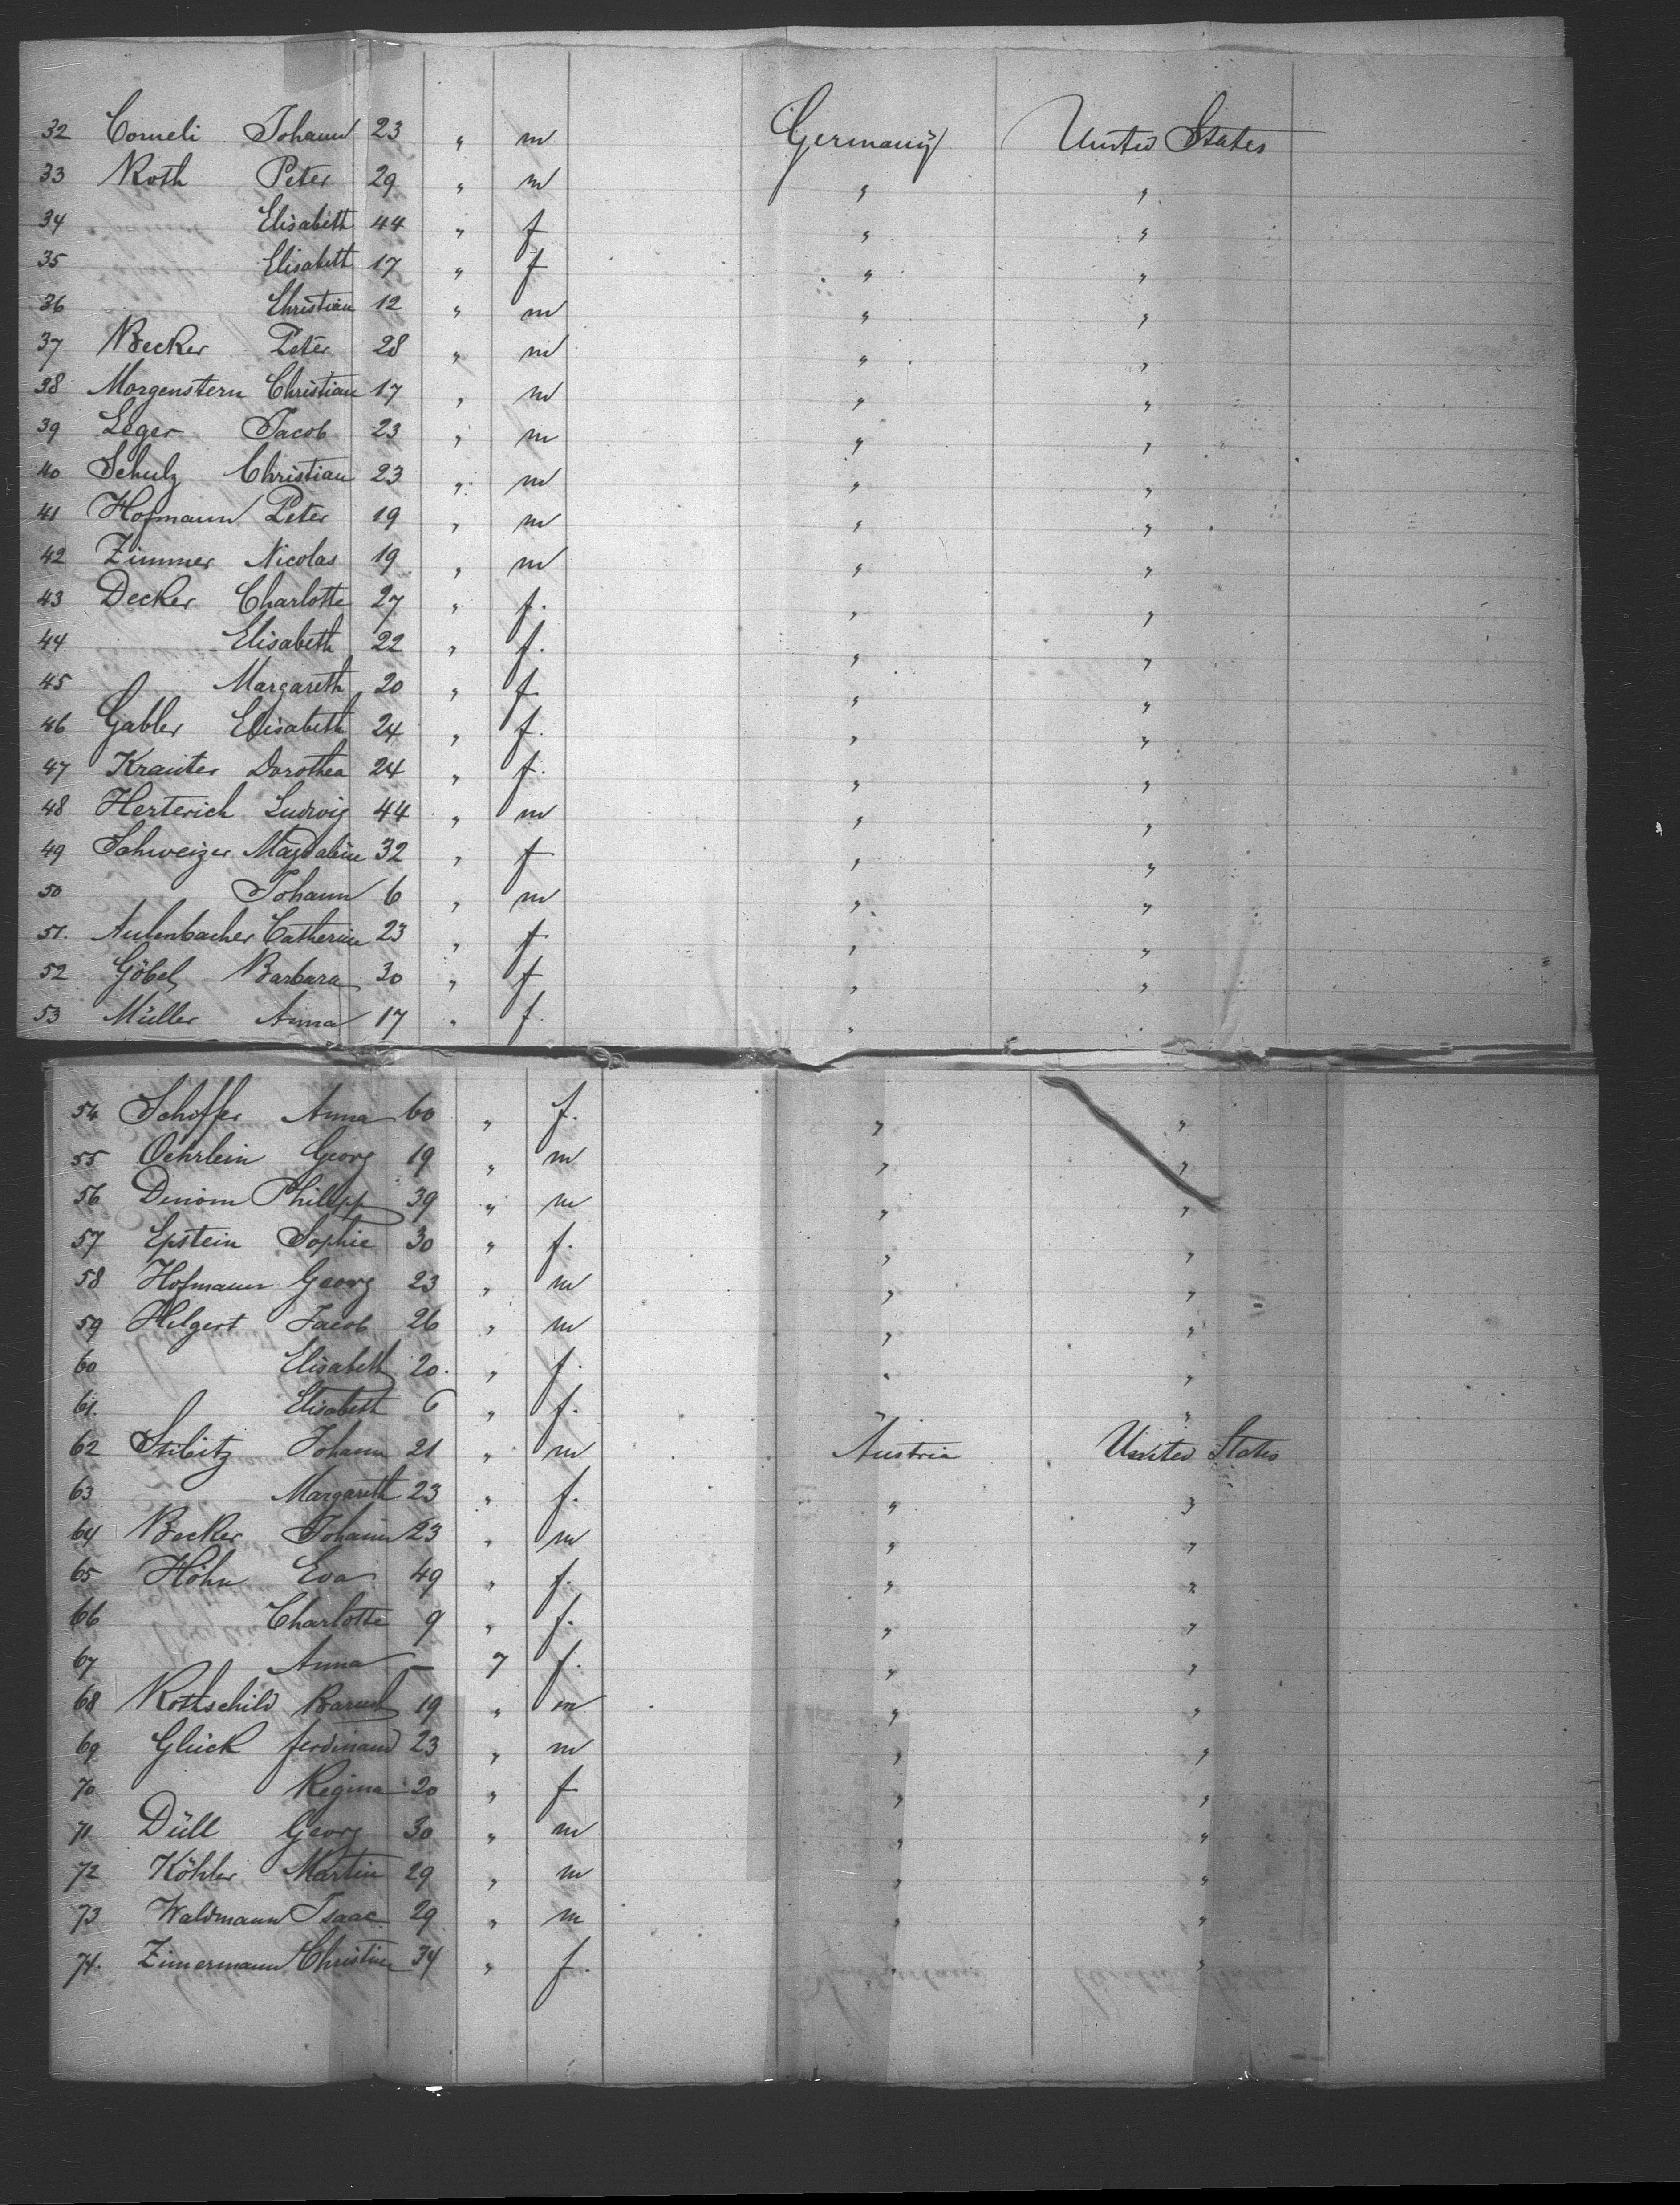 32 Corneli Johann 23 " m Germany United States
33 Roth Peter 29 " m " "
34 Elisabeth 44 " f " "
35 Elisabeth 17 " f " "
36 Christian 12 " m " "
37 Becker Peter 28 " m " "
38 Morgenstern Christian 17 " m " "
39 Leger Jacob 23 " m " "
40 Schulz Christian 23 " m " "
41 Hofmann Peter 19 " m " "
42 Zimmer Nicolas 19 " m " "
43 Decker Charlotte 27 " f. " "
44 Elisabeth 22 " f. " "
45 Margareth 20 " f. " "
46 Gabler Elisabeth 24 " f. " "
47 Krauter Dorothea 24 " f. " "
48 Herterich Ludwig 44 " m " "
49 Schweizer Magdalene 32 " f " "
50 Johann 6 " m " "
51. Aulenbacher Catherine 23 " f " "
52 Göbel Barbara 30 " f " "
53 Müller Anna 17 " f. " "
54 Schiffer Anna 60 " f. " "
55 Oehrlein Georg 19 " m " "
56 Philipp 39 " m " "
57 Epstein Sophie 30 " f. " "
58 Hofmann Georg 23 " m " "
59 Helgert Jacob 26 " m " "
60 Elisabeth 20. " f. " "
61. Elisabeth 6 " f. " "
62 Stibitz Johann 21 " m Austria United States
63 Margareth 23 " f. " "
64 Becker Johann 23 " m " "
65 Höhn Eva 49 " f. " "
66 Charlotte 9 " f. " "
67 Anna – 7 f. " "
68 Rothschild Baruch 19 " m " "
69 Glück ferdinand 23 " m " "
70 Regina 20 " f " "
71 Düll Georg 30 " m " "
72 Köhler Martin 29 " m " "
73 Waldmann Isaac 29 " m " "
74. Zimermann Christine 34 " f. "